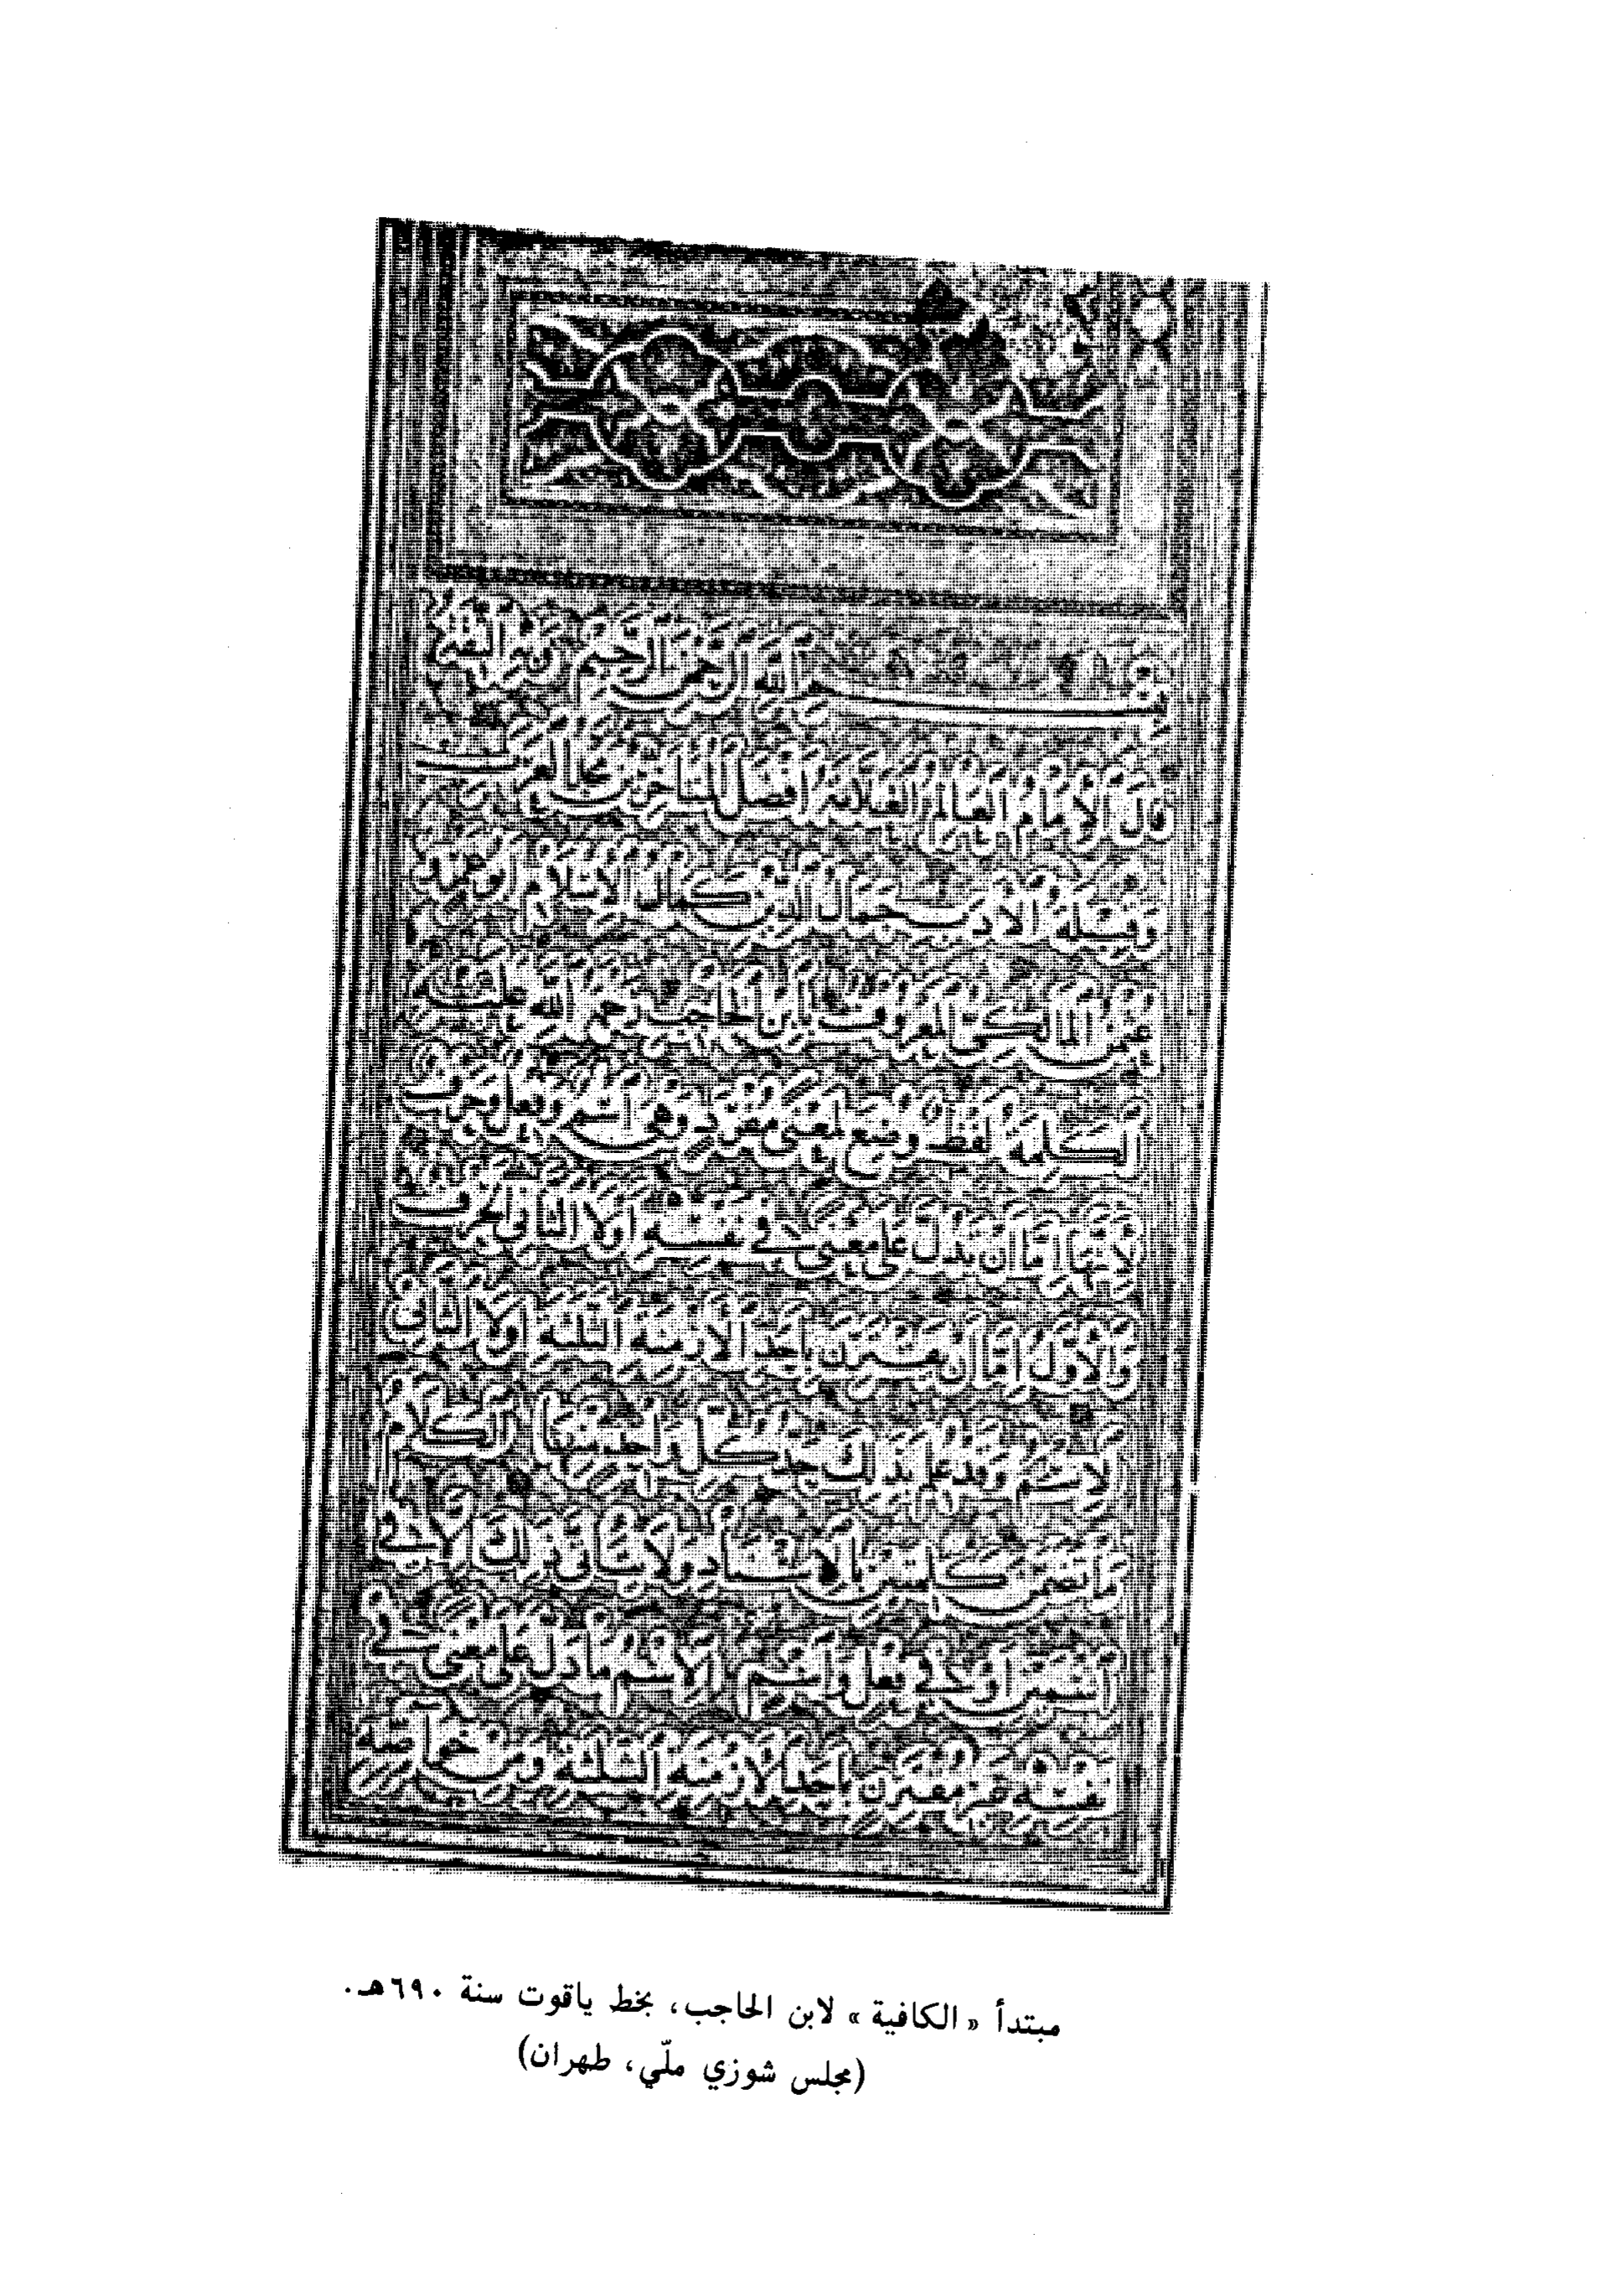 بسم الله الرحمن الرحيم
قال الإمام العالم العلامة أفضل المتأخرين
وقبلة الأدب جمال الدين كمال الإسلام أبو عمرو
عثمن بن أبي بكر المعروف بابن الحاجب رحمة الله عليه
الكلمة لفظ وضع لمعنى مفرد وهي اسم وفعل وحرف
لأنها إما أن تدل على معنى في نفسها أو لا الثاني الحرف
والأول إما أن يقترن بأحد الأزمنة الثلثة أو لا الثاني
الاسم وقد علم بذلك حد كل واحد منها الكلام
ما تضمن كلمتين بالإسناد ولا يتأتى ذلك إلا في
اسمين أو في فعل واسم الاسم ما دل على معنى في
نفسه غير مقترن بأحد الأزمنة الثلثة ومن خواصه
مبتدأ « الكافية » لابن الحاجب، بخط ياقوت سنة ٦٩٠هـ.
(مجلس شوزي ملّي، طهران)